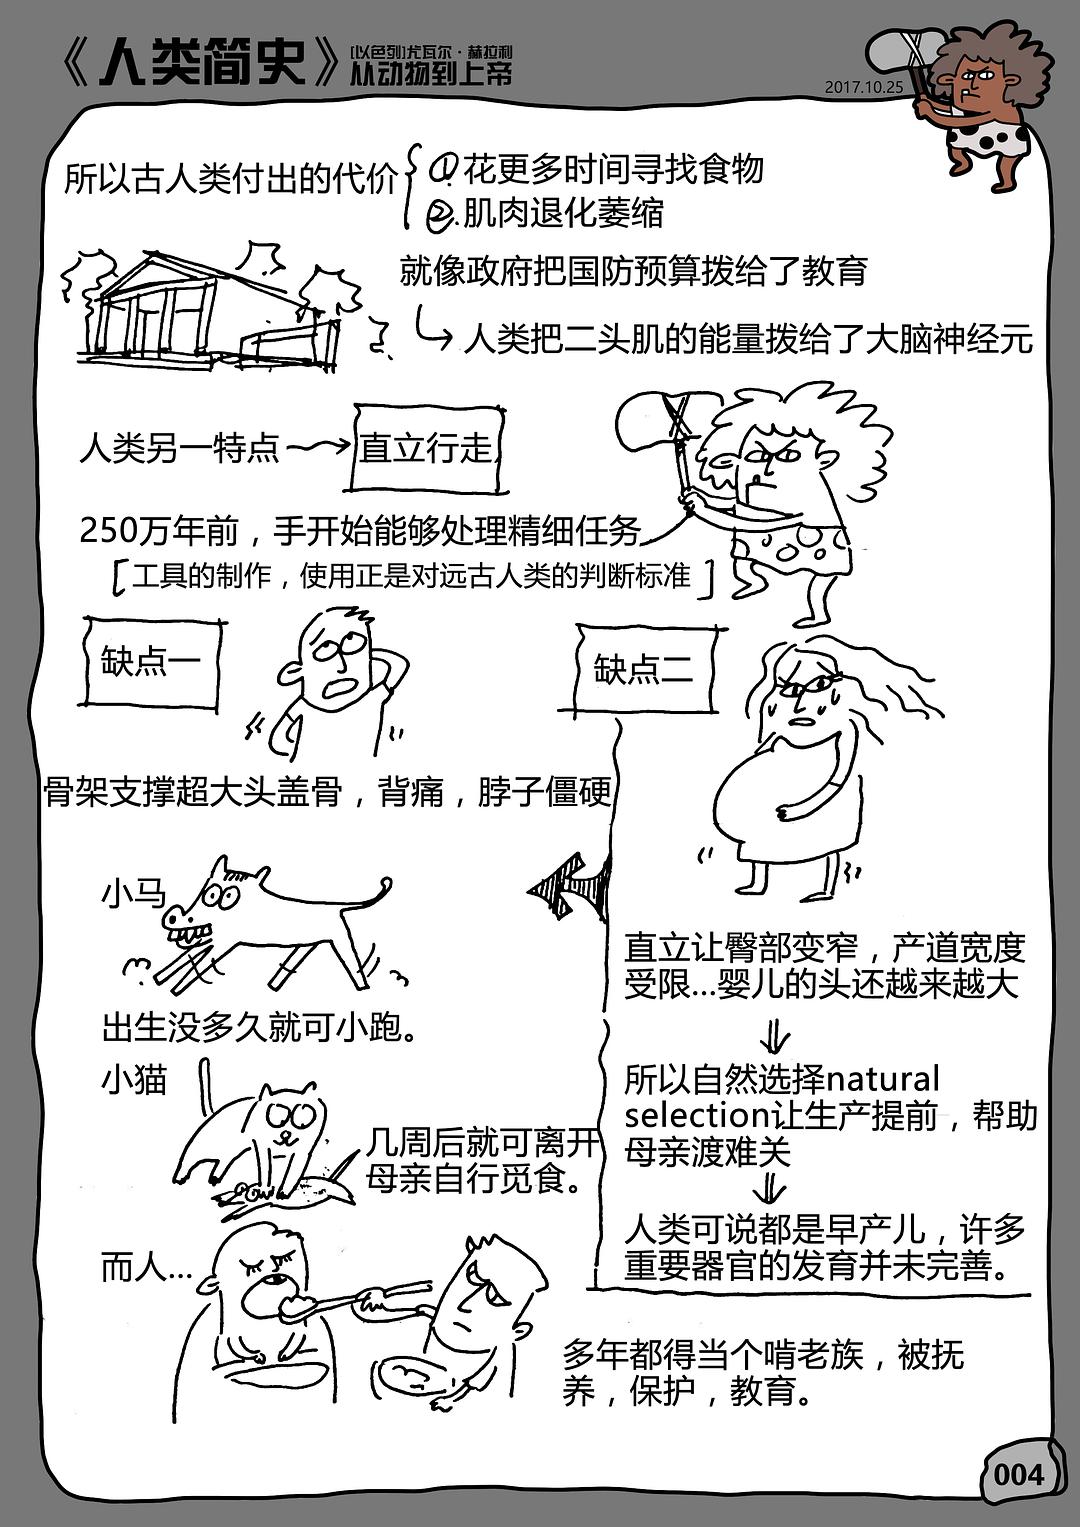 《人类简史》
[以色列]尤瓦尔·赫拉利
从动物到上帝
2017.10.25
所以古人类付出的代价
①.花更多时间寻找食物
②.肌肉退化萎缩
就像政府把国防预算拨给了教育
人类把二头肌的能量拨给了大脑神经元
人类另一特点
直立行走
250万年前，手开始能够处理精细任务
[工具的制作，使用正是对远古人类的判断标准]
缺点一
骨架支撑超大头盖骨，背痛，脖子僵硬
缺点二
直立让臀部变窄，产道宽度
受限...婴儿的头还越来越大
所以自然选择natural
selection让生产提前，帮助
母亲渡难关
人类可说都是早产儿，许多
重要器官的发育并未完善。
小马
出生没多久就可小跑。
小猫
几周后就可离开
母亲自行觅食。
而人...
多年都得当个啃老族，被抚
养，保护，教育。
004